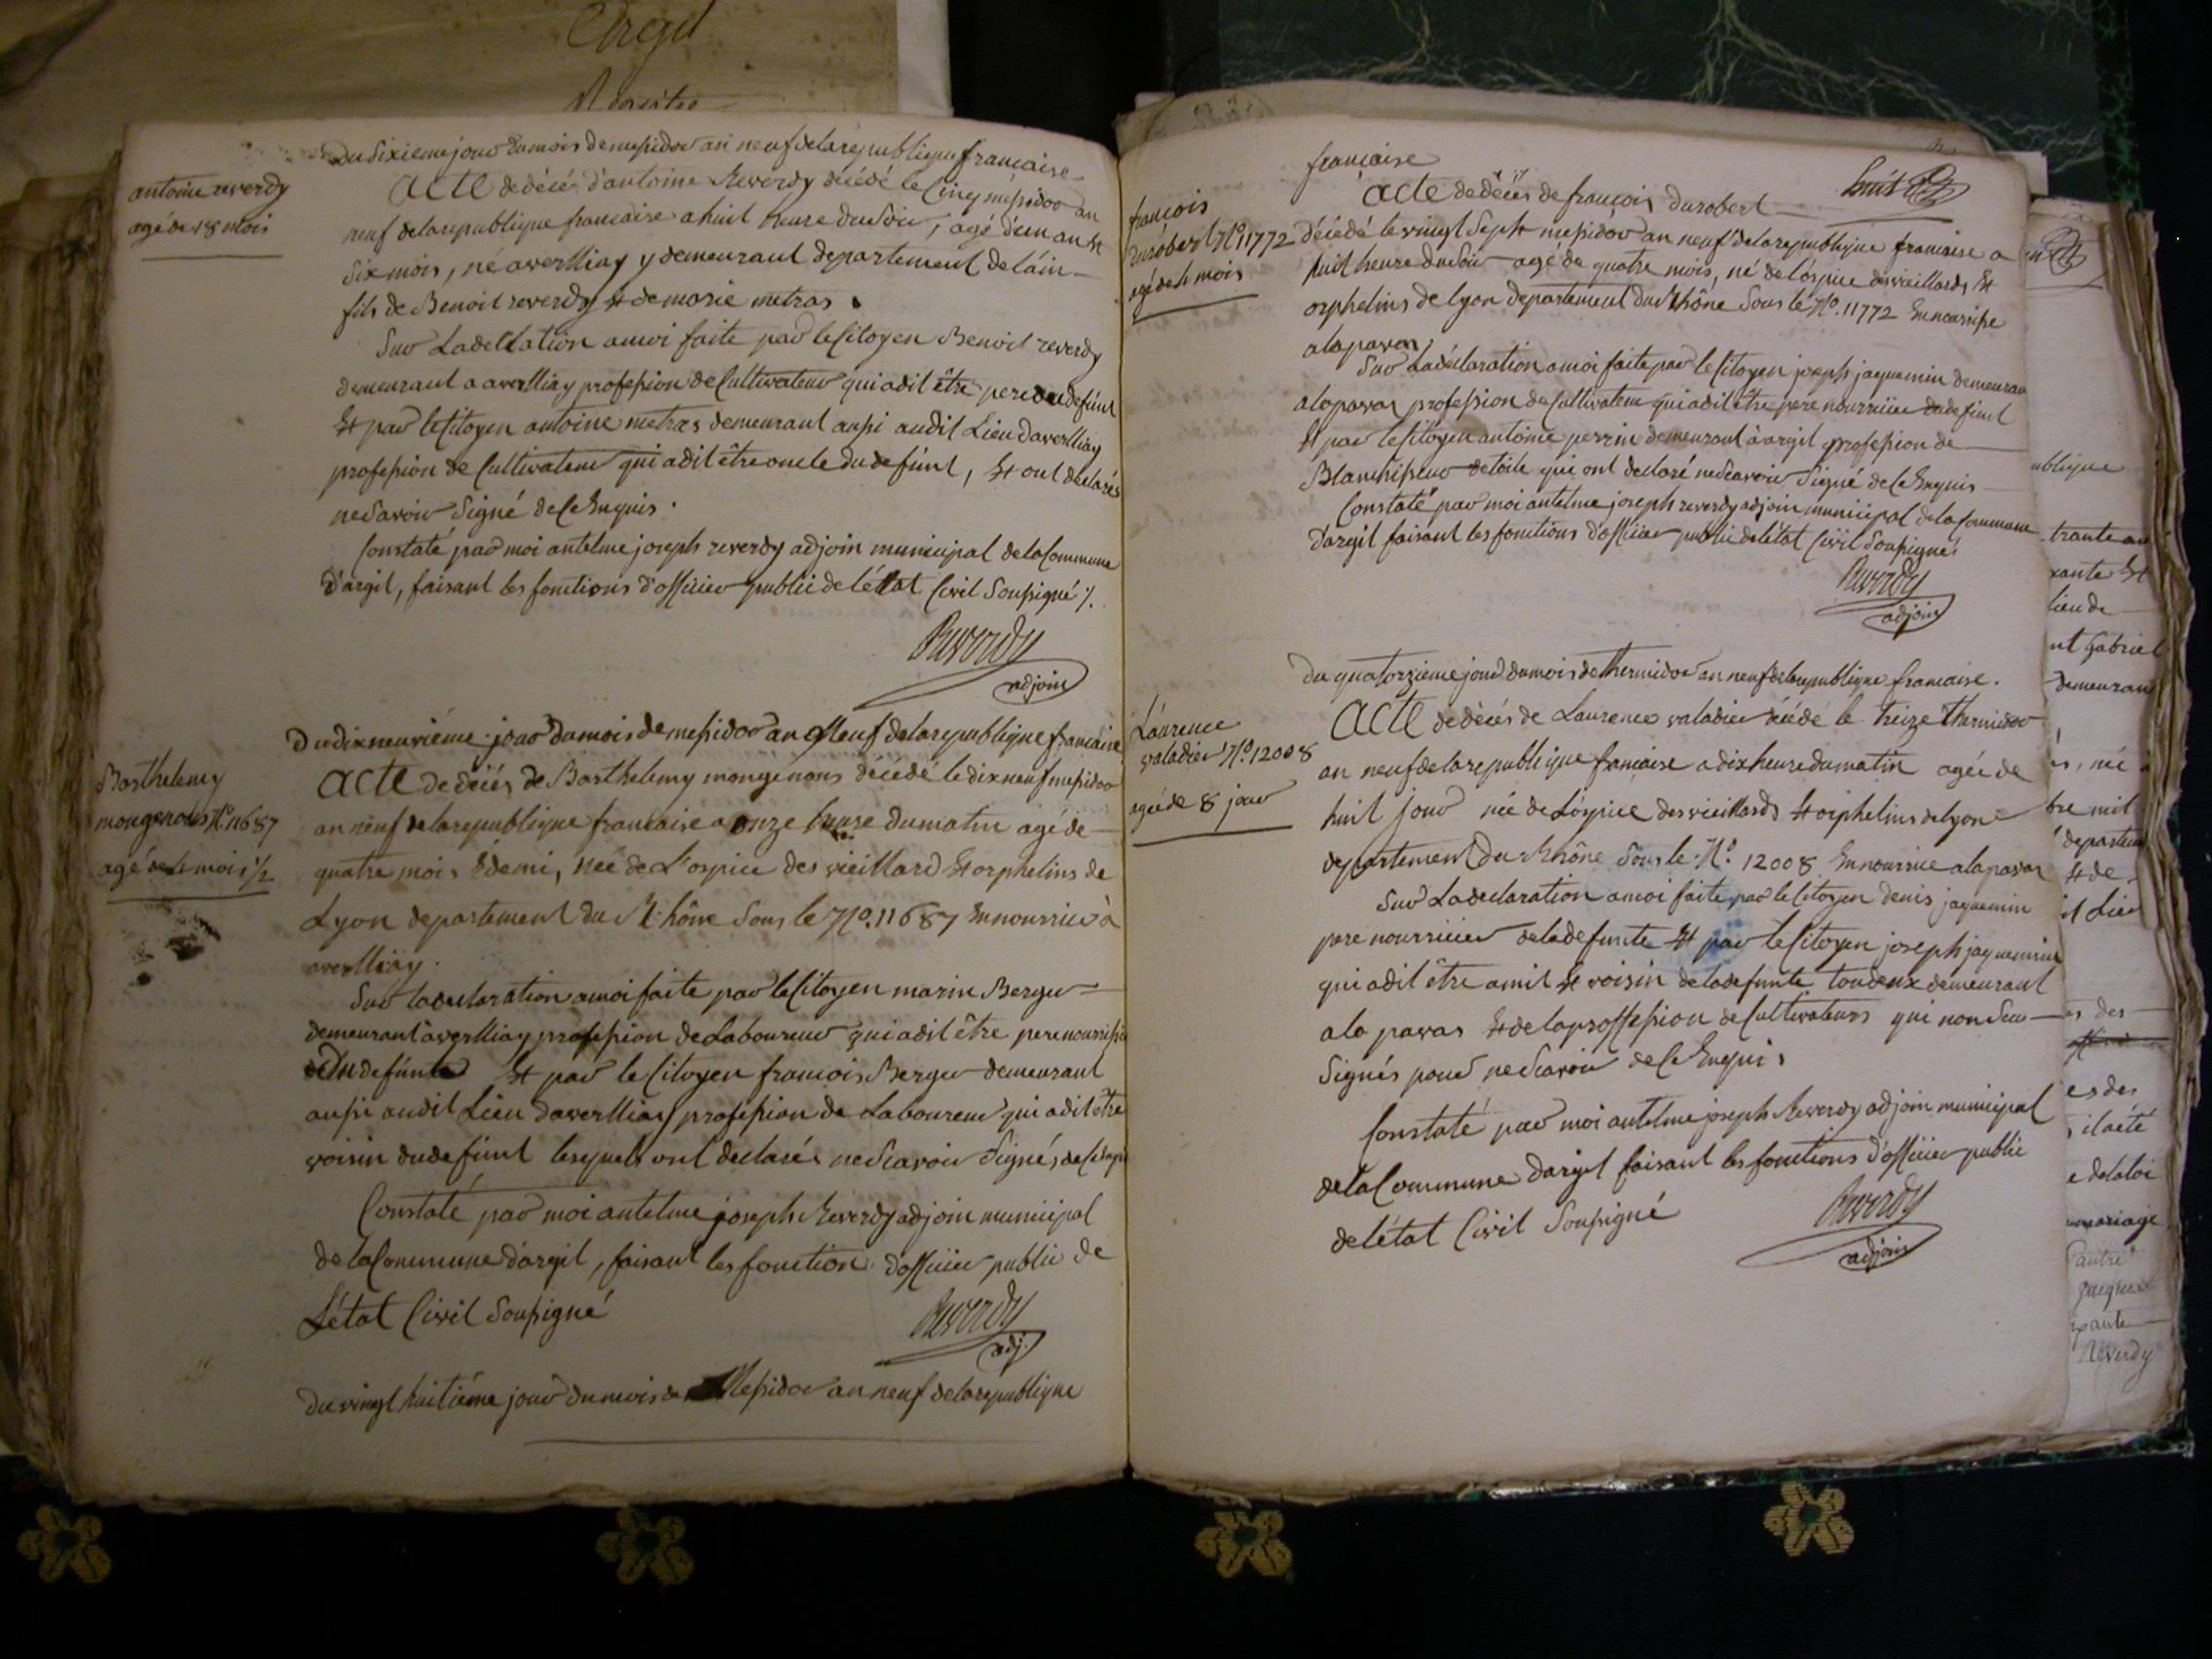 argil
Registre
Du Sixieme jour du mois de messidor an neuf de la republique française
antoine reverdy
agé de 18 mois
Acte de décés d'antoine Reverdy décédé le Cinq messidor an
neuf de la republique francaise a huit heure du Soir, agé d'un an et
Six mois, né a averlliay y demeurant departement de láin
fils de Benoit reverdy et de marie metras.
Sur La declation a moi faite par le Citoyen Benoit reverdy
demeurant a averlliay profession de Cultivateur qui a dit être pere du defúnt
et par le Citoyen antoine metras demeurant aussi au dit Lieu d'averlliay
profession de Cultivateur qui a dit être oncle du defúnt, et ont déclarés
ne Savoir Signé de Ce Enquis.
Constaté par moi antelme joseph reverdy adjoin municipal de la Commune
d'argil, faisant les fonctions d'officier public de l'état Civil Soussigné ./.
Reverdy
adjoin
Du dix neuviéme jour du mois de messidor an Neuf de la republique francaise
Barthelemy
mongenots No. 11687
agé de 4 mois 1/2
Acte de décés de Barthelemy mongenons décédé le dix neuf messidor
an neuf de la republique francaise a onze heure du matin agé de
quatre mois & demi, née de L'ospice des vieillard et orphelins de
Lyon departement du Rhône Sous le No. 11687 En nourrice à
averlliay.
Sur la declaration a moi faite par le Citoyen marin Berger
demeurant à averlliay profession de Laboureur qui a dit être pere nourricier
du defúnt et par le Citoyen francois Berger demeurant
aussi au dit Lieu d'averlliay profession de Laboureur qui a dit être
voisin du defúnt lesquels ont déclarés ne Scavoir Signé, de Ce Enquis
Constaté par moi antelme joseph Reverdy adjoin municipal
de la Commune d'argil, faisant les fonction d'officier public de
L'état Civil Soussigné
Reverdy
adj.
Du vingt huitiéme jour du mois de Messidor an neuf de la republique
francaise
francois
durobert No 11772
agé de 4 mois
Acte de décés de françois durobert
décédé le vingt Sept messidor an neuf de la republique francaise a
huit heure du Soir agé de quatre mois, né de l'óspice des vieillards et
orphelins de lyon departement du Rhône Sous le No. 11772 En nourrisse
a la pavas,
Sur La déclaration a moi faite par le Citoyen joseph jaquemin demeuran
a la pavas profession de Cultivateur qui a dit être pere nourricier du defúnt
et par le Citoyen antoine perrin demeurant à argil profession de
Blanchisseur de toile qui ont declaré ne Scavoir Signé de Ce Enquis
Constaté par moi antelme joseph reverdy adjoin municipal de la Commune
d'argil faisant les fonctions d'officier public de l'état Civil Soussigné
Reverdy
adjoin
Du quatorzieme jour du mois de thermidor an neuf de la republique francaise.
Laurence
valadier No. 12008
agée de 8 jour
Acte de décés de Laurence valadier décédé le treize thermidor
an neuf de la republique francaise a dix heure du matin agée de
huit jour née de L'óspice des vieillards et orphelins de lyon
departement du Rhône Sous le No. 12008 En nourrice a la pavas
Sur La declaration a moi faite par le Citoyen denis jaquemin
pere nourricier de la defunte et par le Citoyen joseph jaquemin
qui a dit être amit et voisin de la defunte tou deux demeurant
a la pavas et de la proffession de Cultivateurs qui non Seu
Signés pour ne Scavoir de Ce Enquis
Constaté par moi antelme joseph Reverdy adjoin municipal
de la Commune d'argil faisant les fonctions d'officier public
de l'état Civil Soussigné
Reverdy
adjoin
ublique
trante an
xante et
lieu de
nt Gabriel
demeuran
bre mil
departem
et de
it Lieu
es des
es des
e de la loi
mariage
Reverdy